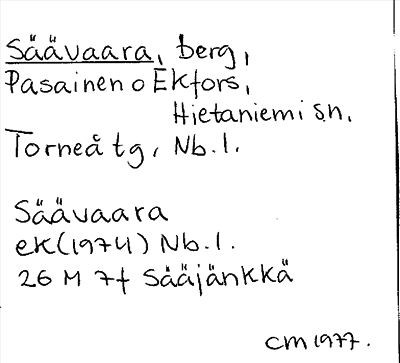 Säävaara, berg,
Pasainen o Ekfors,
Hietaniemi sn,
Torneå tg, Nb.l.
Säävaara
ek(1974) Nb.l.
26 M 7f Sääjänkkä
CM 1977.